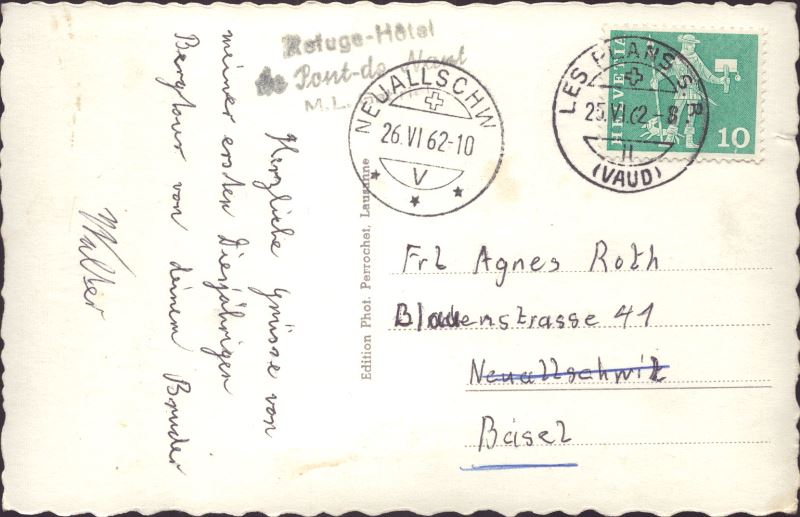 Refuge-Hôtel
de Pont-de-Nant
M. L.
Herzliche Grüsse von
meiner ersten Diesjährigen
Bergtour von deinem Bruder
Walter
Edition Phot. Perrochet, Lausanne
NEUALLSCHW
26.VI 62-10
V
LES PLANS S.
25.VI.62-8
II
(VAUD)
HELVETIA
10
Frl Agnes Roth
Blauenstrasse 41
Neuallschwil
Basel